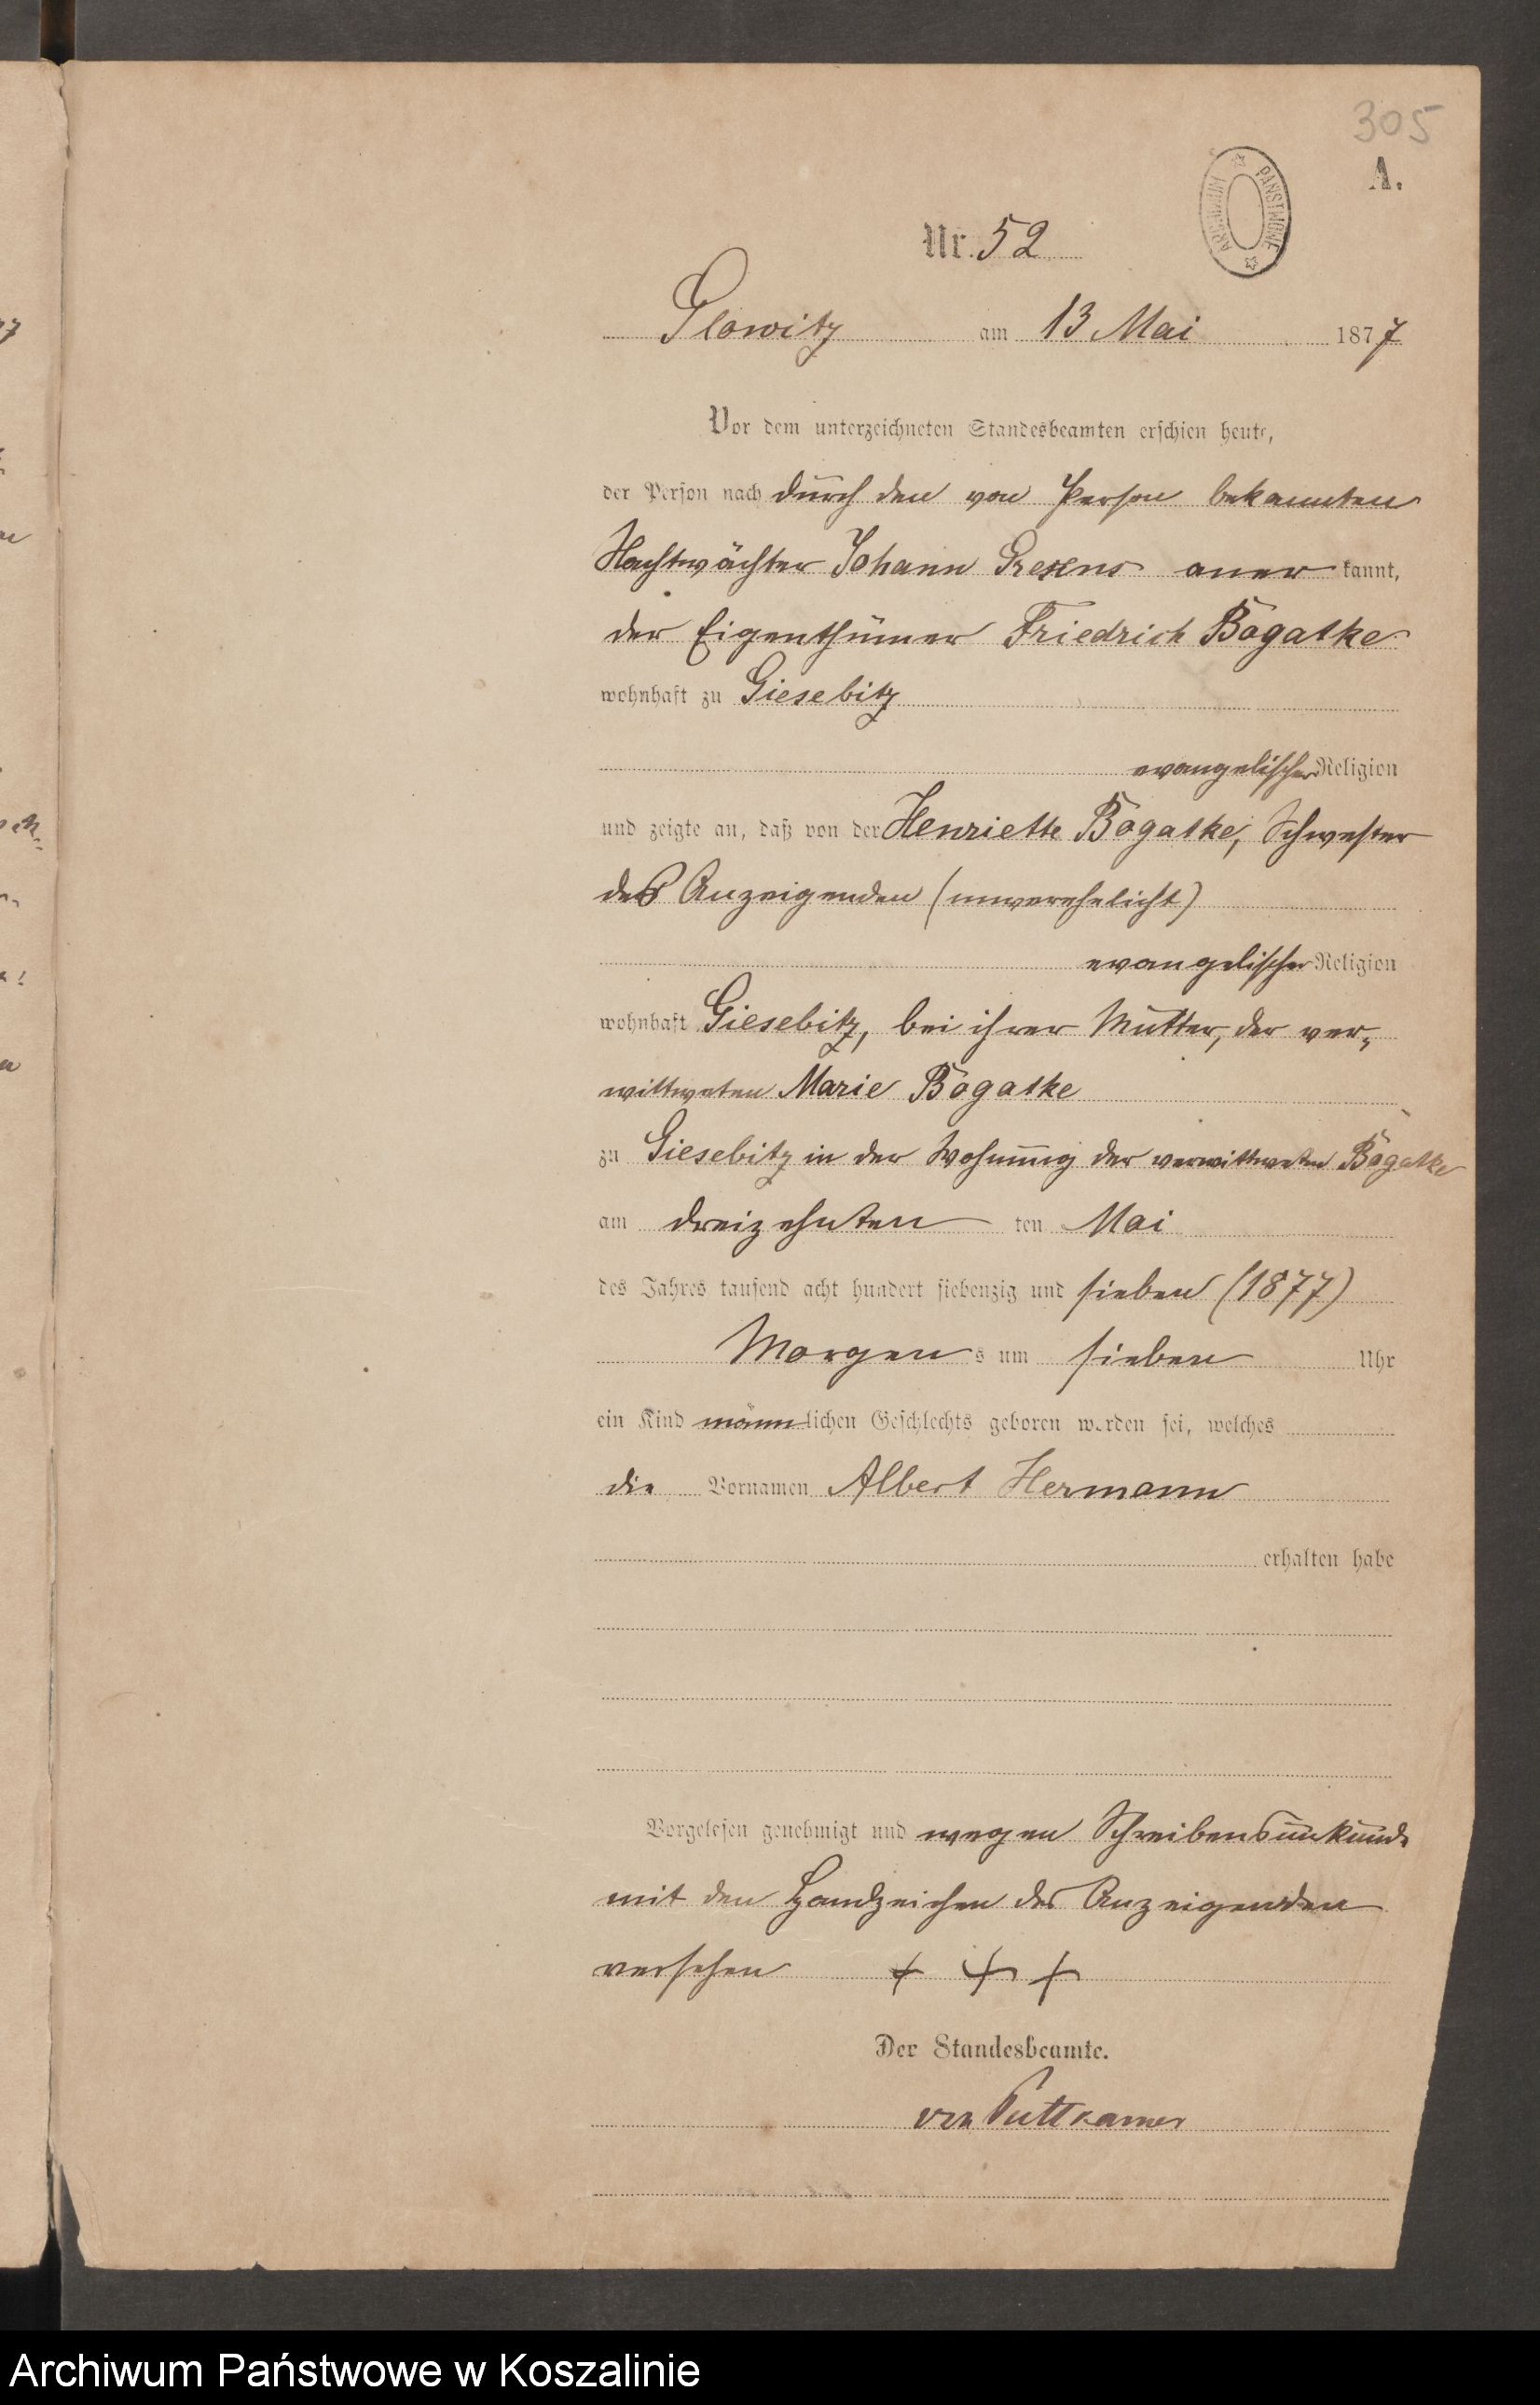 305
A.
ARCHIWUM PAŃSTWOWE
Nr. 52
Glowitz am 13 Mai 1877
Vor dem unterzeichneten Standesbeamten erschien heute,
der Person nach durch den von Person bekannten
Nachtwächter Johann anerkannt,
der Eigenthümer Friedrich Bögatke
wohnhaft zu Giesebitz
evangelischer Religion
und zeigte an, daß von der Henriette Bögatke, Schwester
des Anzeigenden (unverehelicht)
evangelischer Religion
wohnhaft Giesebitz, bei ihrer Mutter, der ver-
wittweten Marie Bögatke
zu Giesebitz in der Wohnung der verwittweten Bögatke
am dreizehnten ten Mai
des Jahres tausend acht hundert siebenzig und sieben (1877)
Morgens um sieben Uhr
ein Kind männlichen Geschlechts geboren worden sei, welches
die Vornamen Albert Hermann
erhalten habe
Vorgelesen genehmigt und wegen Schreibensunkunde
mit den Handzeichen des Anzeigenden
versehen + + +
Der Standesbeamte.
von Puttkamer
Archiwum Państwowe w Koszalinie